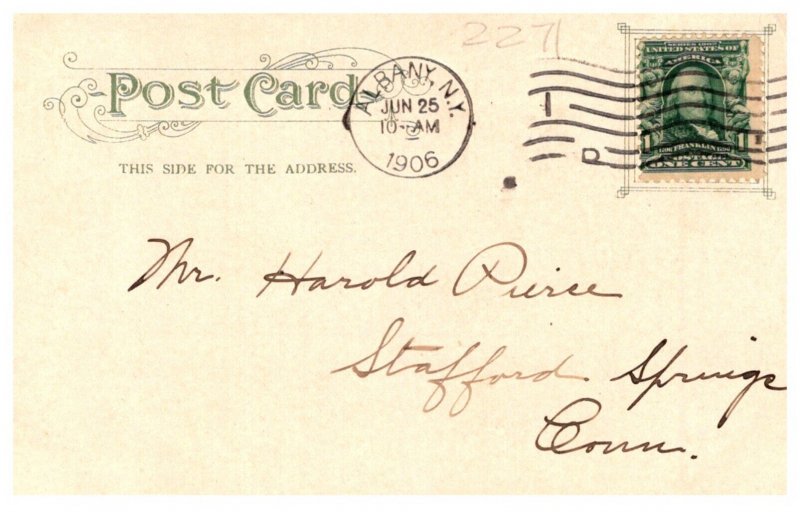 227
Post Card
THIS SIDE FOR THE ADDRESS.
ALBANY, N.Y.
JUN 25
10-AM
1906
SERIES 1902
UNITED STATES OF
AMERICA
1 FRANKLIN 1
POSTAGE
ONE CENT
Mr. Harold Pierce
Stafford Springs
Conn.